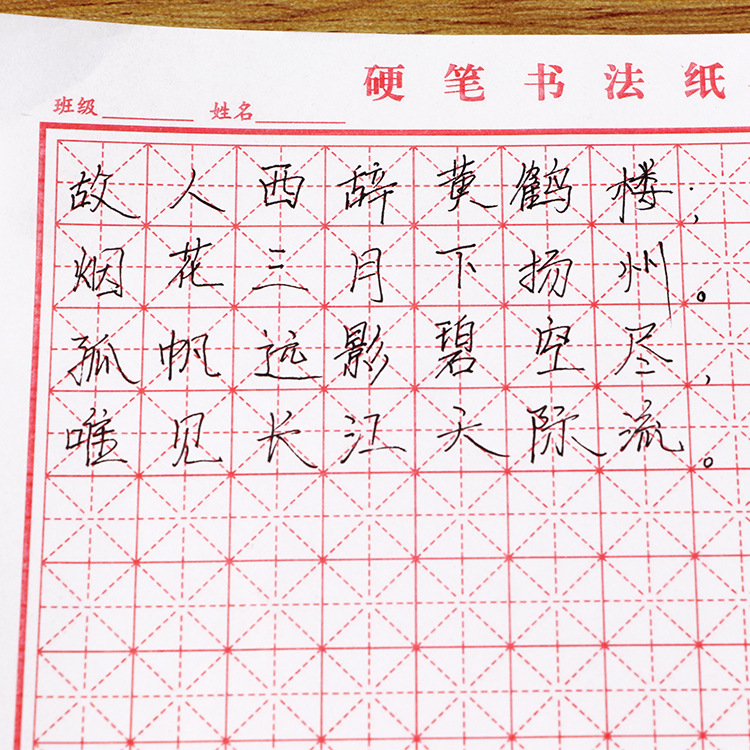 硬笔书法纸
班级 姓名
故人西辞黄鹤楼;
烟花三月下扬州。
孤帆远影碧空尽,
唯见长江天际流。